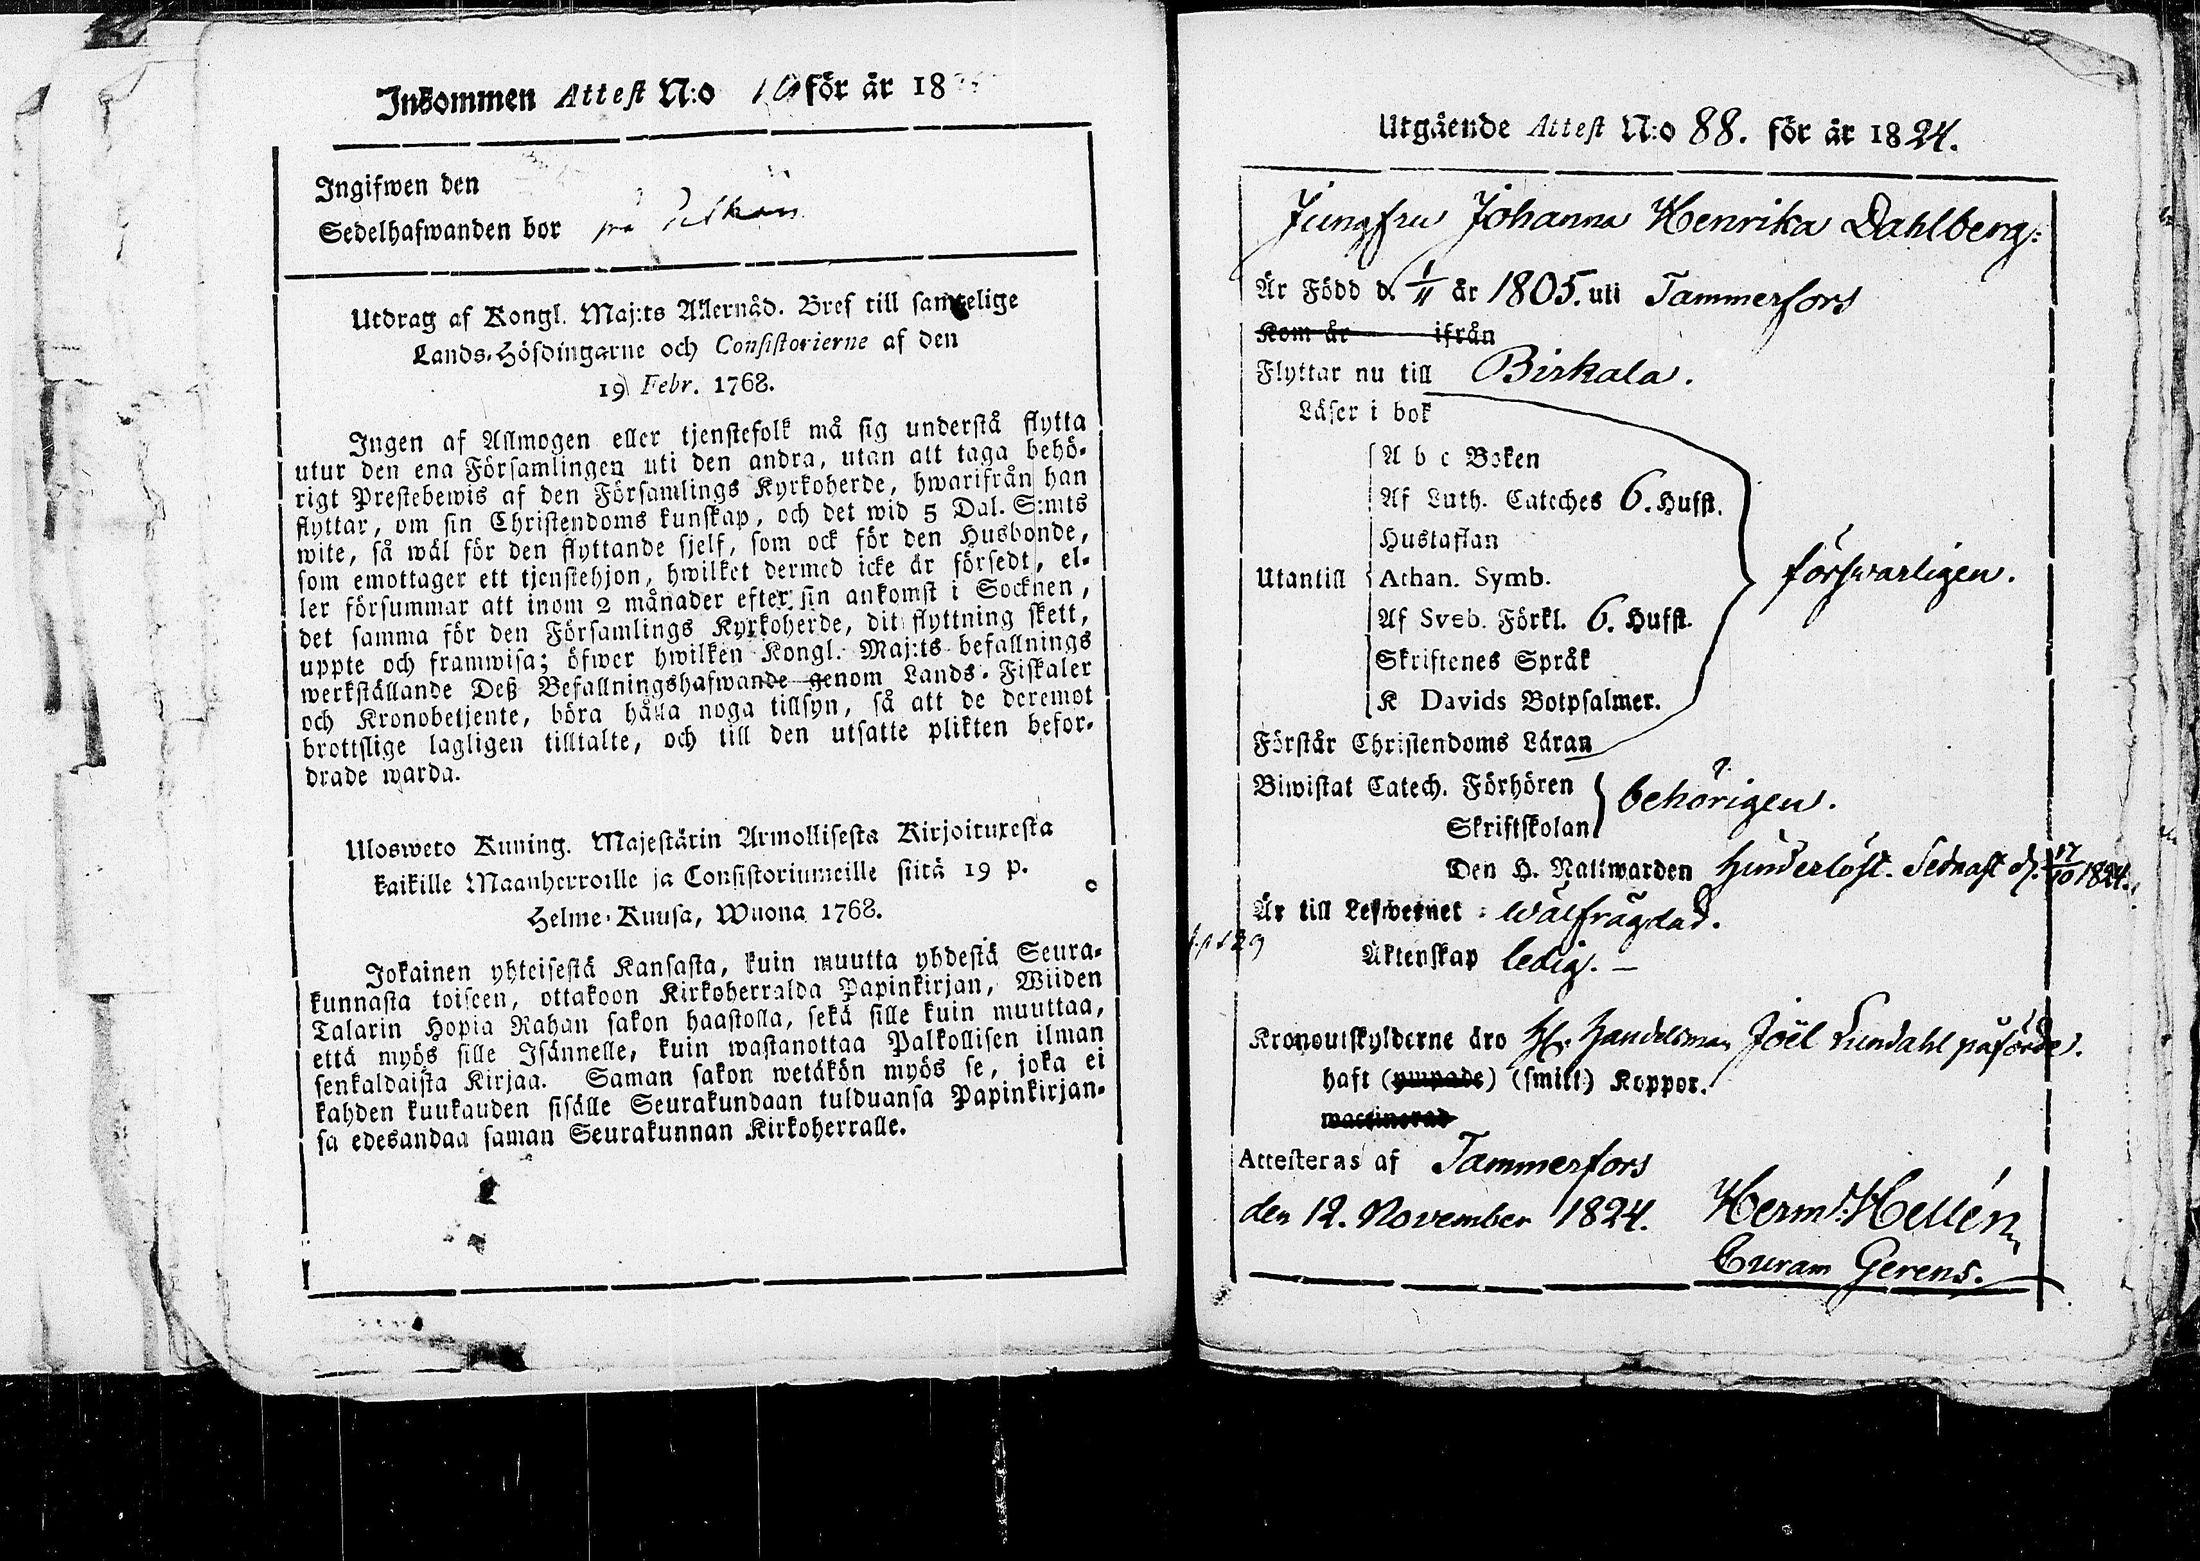 Inkommen Attest N:o 16 för år 18
Ingifwen den
Sedelhafwanden bor på
Utdrag af Kongl. Maj:ts Allernåd. Bref till samtelige
Lands-Höfdingarne och Consistorierne af den
19 Febr. 1768.
Ingen af Allmogen eller tjenstefolk må sig understå flytta
utur den ena Församlingen uti den andra, utan att taga behö-
rigt Prestebewis af den Församlings Kyrkoherde, hwarifrån han
flyttar, om sin Christendoms kunskap, och det wid 5 Dal. S:mts
wite, så wäl för den flyttande sjelf, som ock för den Husbonde,
som emottager ett tjenstehjon, hwilket dermed icke är försedt, el-
ler försummar att inom 2 månader efter sin ankomst i Socknen,
det samma för den Församlings Kyrkoherde, dit flyttning skett,
uppte och framwisa; öfwer hwilken Kongl. Maj:ts befallnings
werkställande Deß Befallningshafwande genom Lands-Fiskaler
och Kronobetjente, böra hålla noga tillsyn, så att de deremot
brottslige lagligen tilltalte, och till den utsatte plikten befor-
drade warda.
Ulosweto Kuning. Majestärin Armollisesta Kirjoituxesta
kaikille Maanherroille ja Consistoriumeille siitä 19 p.
Helme-Kuusa, Wuona 1768.
Jokainen yhteisestä Kansasta, kuin muutta yhdestä Seura-
kunnasta toiseen, ottakoon Kirkoherralda Papinkirjan, Wiiden
Talarin Hopia Rahan sakon haastolla, sekä sille kuin muuttaa,
että myös sille Isännelle, kuin wastanottaa Palkollisen ilman
senkaldaista Kirjaa. Saman sakon wetäkön myös se, joka ei
kahden kuukauden sisälle Seurakundaan tulduansa Papinkirjan-
sa edesandaa saman Seurakunnan Kirkoherralle.
Utgående Attest N:o 88. för år 1824.
Jungfru Johanna Henrika Dahlberg:
Är Född d. 1/11 år 1805. uti Tammerfors
Kom år ifrån
Flyttar nu till Birkala.
Läser i bok
A b c Boken
Af Luth. Cateches 6. Hufst.
Hustaflan
Utantill Athan. Symb. förswarligen.
Af Sveb. Förkl. 6. Hufst.
Skriftenes Språk
K Davids Botpsalmer.
Förstår Christendoms Läran
Biwistat Catech. Förhören behörigen.
Skriftskolan
Den H. Nattwarden hinderlöst. Sednast d. 17/10 1824.
Är till Lefwernet wälfrägdad.
Äktenskap ledig. —
Kronoutskylderne äro Hr Handelsman Joël Lundahl påförde.
haft (ympade) (smitt) Koppor.
waccinerad
Attesteras af Tammerfors
den 12. November 1824. Herm: Hellén
Curam Gerens.